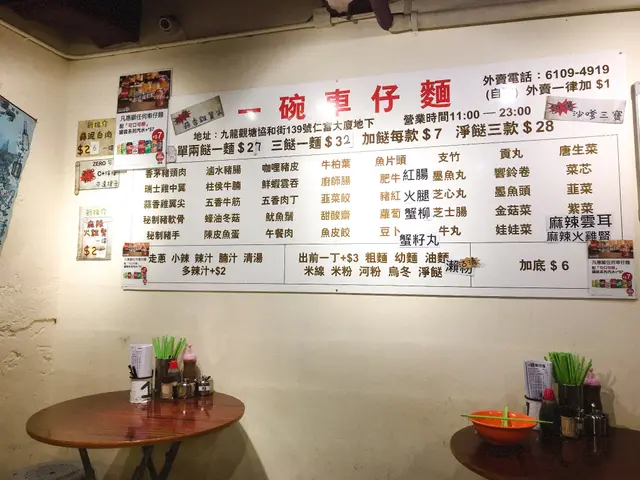 一碗車仔麵
外賣電話：6109-4919
(自取) 外賣一律加 $1
地址：九龍觀塘協和街139號仁富大廈地下
營業時間11:00 — 23:00
沙嗲三寶
單兩餸一麵 $27 三餸一麵 $32 加餸每款 $7 淨餸三款 $28
香茅豬頸肉 滷水豬腸 咖喱豬皮 牛柏葉 魚片頭 支竹 貢丸 唐生菜
瑞士雞中翼 柱侯牛腩 鮮蝦雲吞 廚師腸 肥牛 紅腸 墨魚丸 響鈴卷 菜芯
蒜香雞翼尖 五香牛筋 五香肉丁 韮菜餃 豬紅 火腿 芝心丸 墨魚頭 韮菜
秘制豬軟骨 蠔油冬菇 魷魚鬚 甜酸齋 蘿蔔 蟹柳 芝士腸 金菇菜 紫菜
秘制豬手 陳皮魚蛋 午餐肉 魚皮餃 豆卜 牛丸 娃娃菜 麻辣雲耳
蟹籽丸 麻辣火雞腎
走蔥 小辣 辣汁 腩汁 清湯
多辣汁+$2
出前一丁+$3 粗麵 幼麵 油麵
米線 米粉 河粉 烏冬 淨餸 瀨粉
加底 $ 6
新推介
$26
ZERO
新推介
$2
凡惠顧任何車仔麵
凡惠顧任何車仔麵